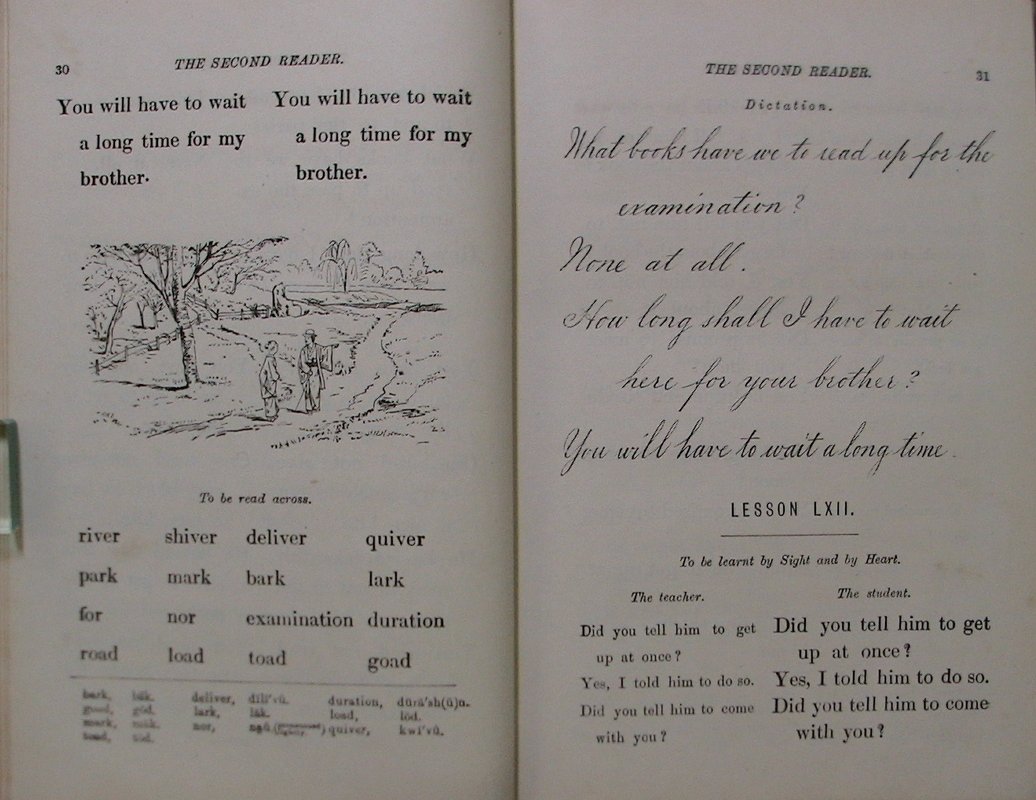 30
THE SECOND READER.
You will have to wait
a long time for my
brother.
You will have to wait
a long time for my
brother.
To be read across.
river shiver deliver quiver
park mark bark lark
for nor examination duration
road load toad goad
bark, deliver, duration,
goad, lark, load, lōd.
mark, nor, quiver,
toad,
THE SECOND READER.
31
Dictation.
What books have we to read up for the
examination?
None at all.
How long shall I have to wait
here for your brother?
You will have to wait a long time.
LESSON LXII.
To be learnt by Sight and by Heart.
The teacher. The student.
Did you tell him to get
up at once?
Yes, I told him to do so.
Did you tell him to come
with you?
Did you tell him to get
up at once?
Yes, I told him to do so.
Did you tell him to come
with you?